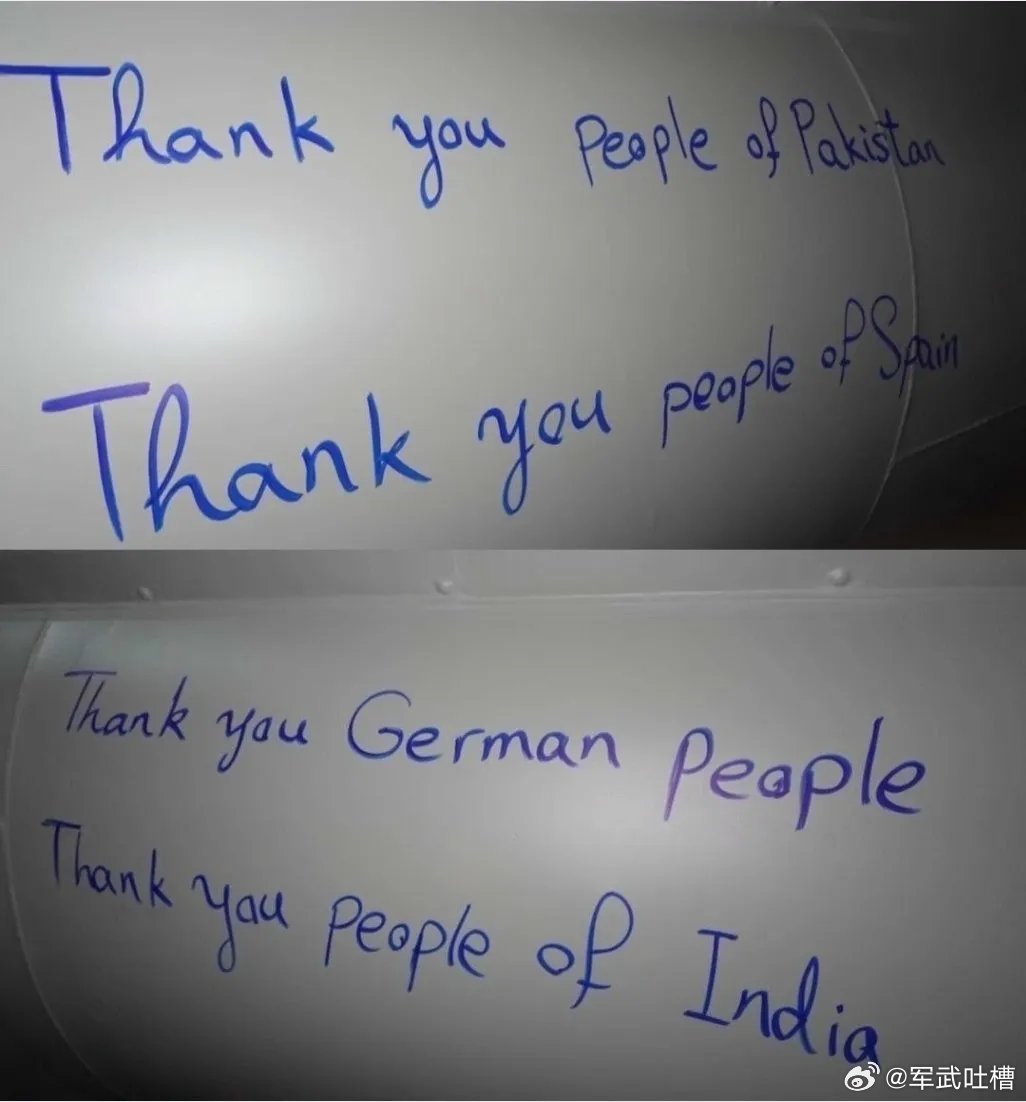 Thank you People of Pakistan
Thank you people of Spain
Thank you German People
Thank you People of India
@军武吐槽